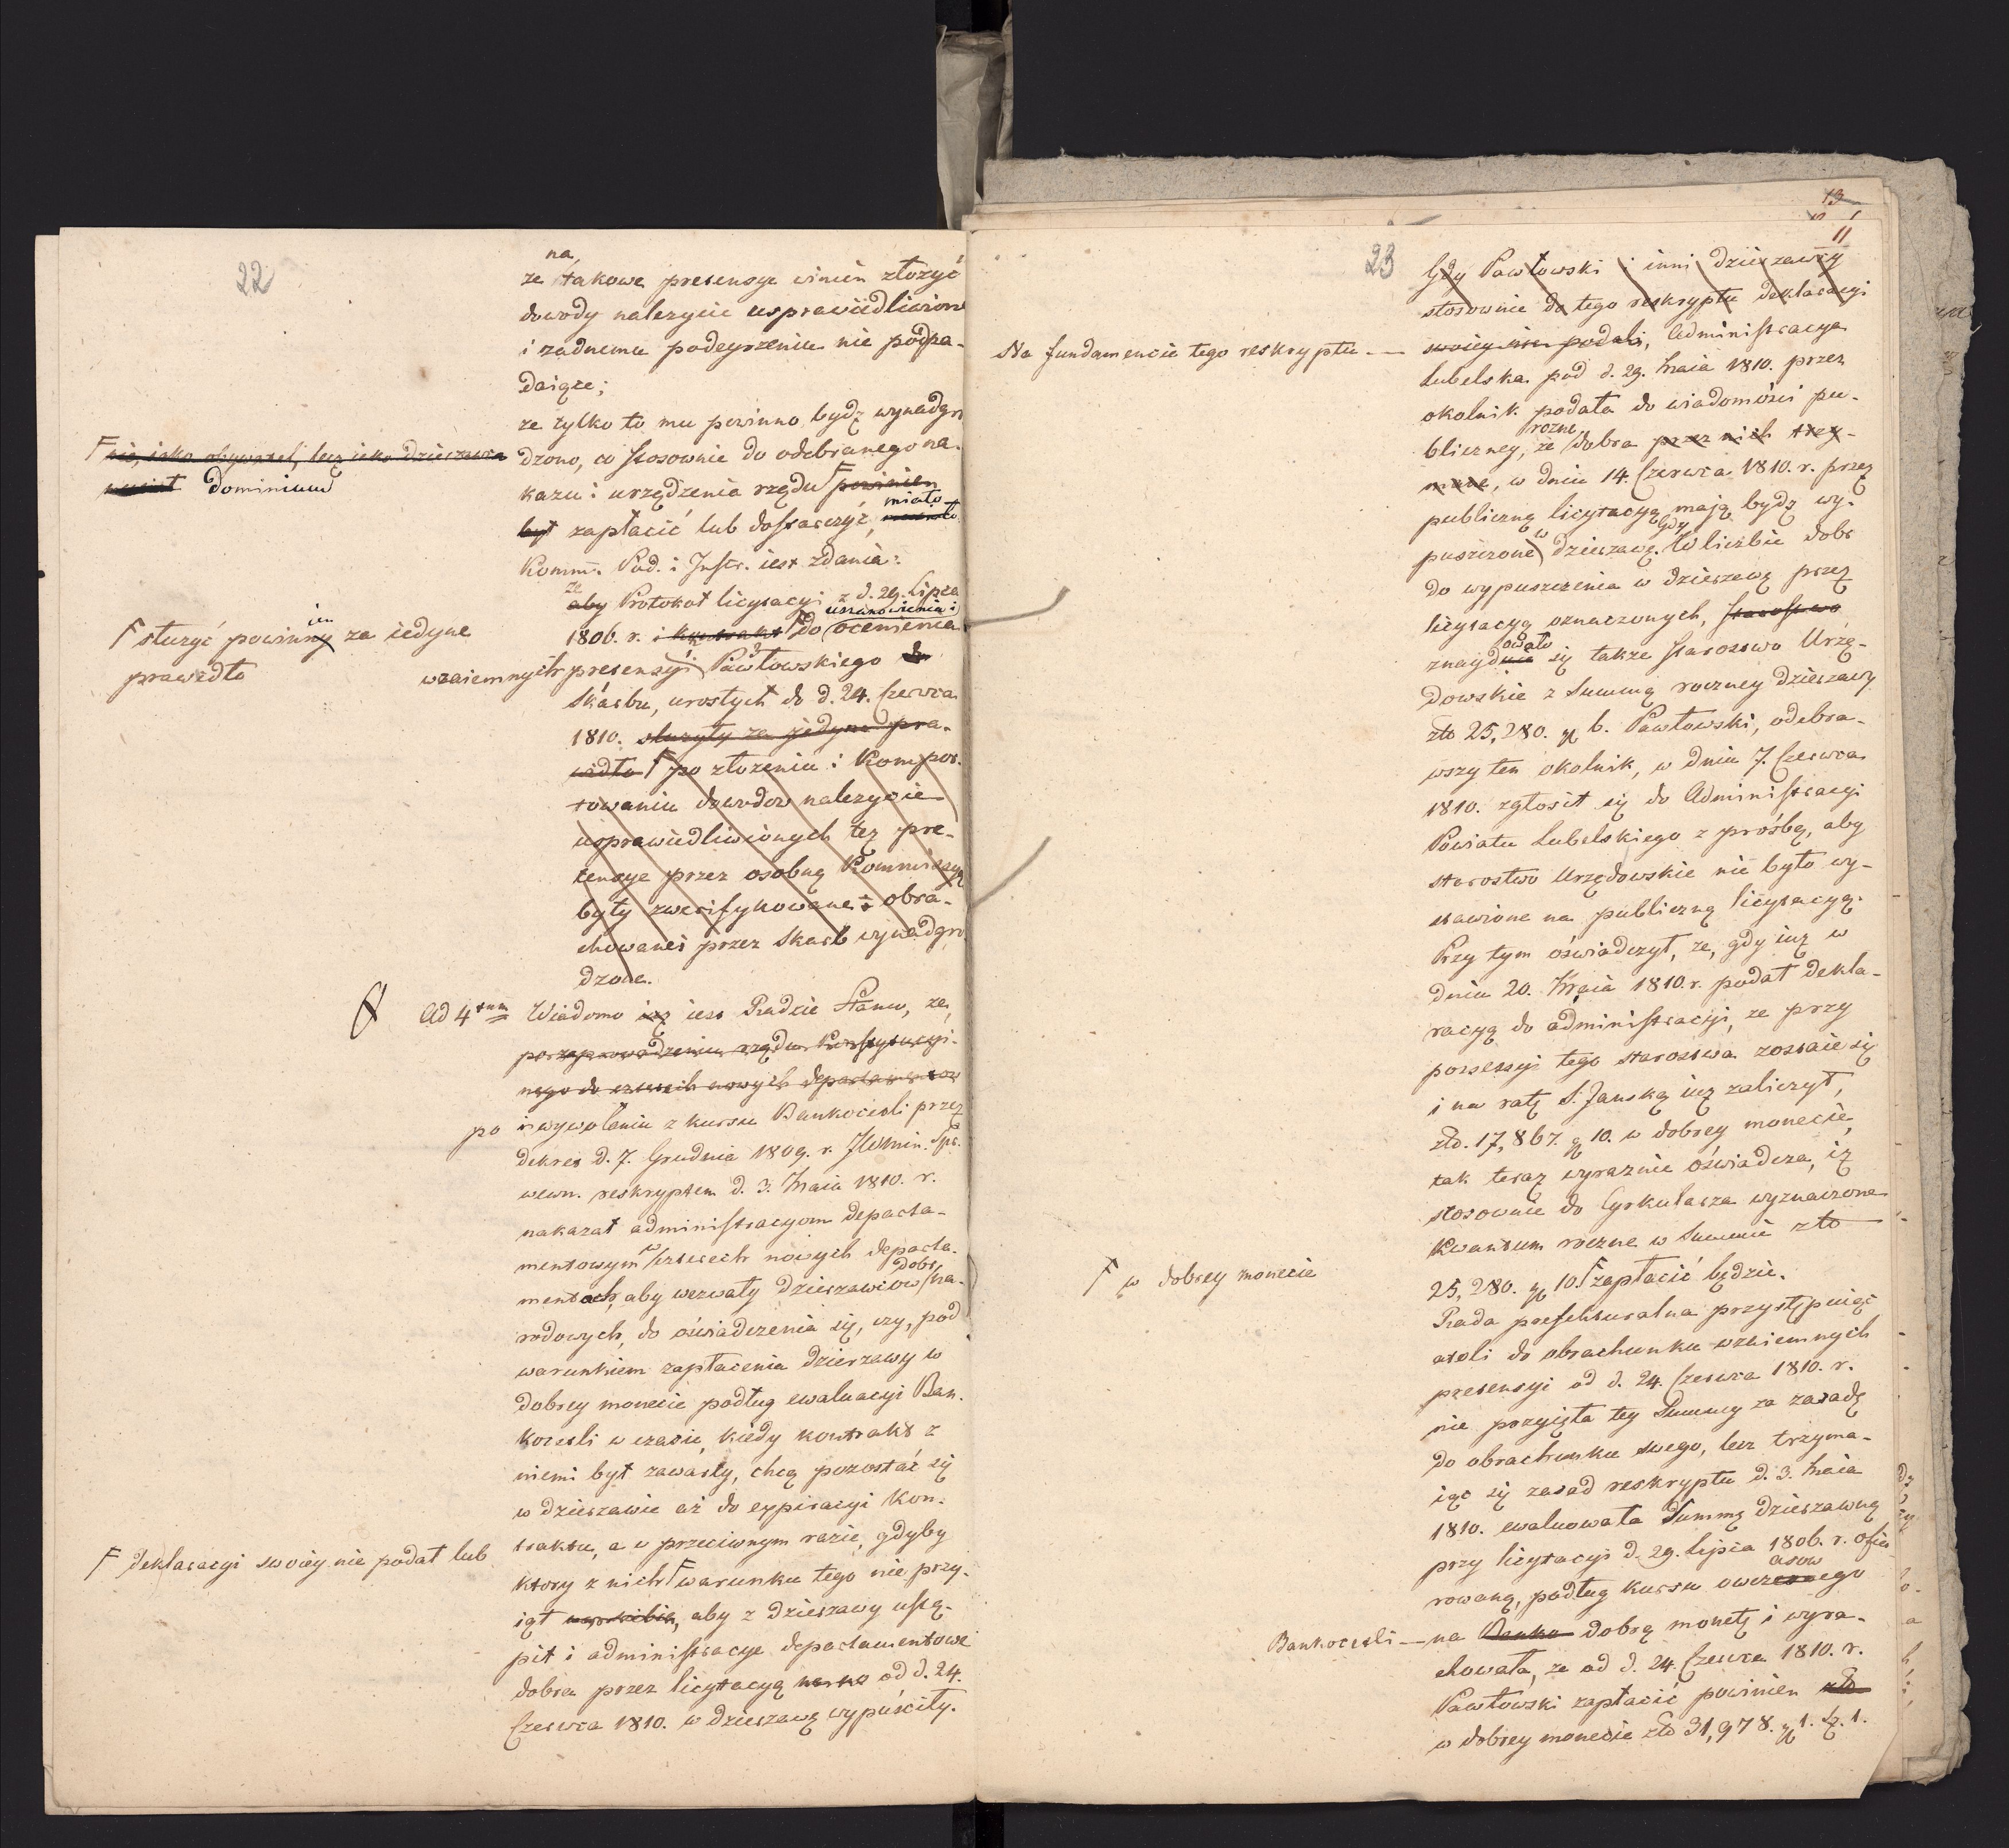 22
na
że takowe pretensye winien złożyć
dowody należycie usprawiedliwione
i żadnemu podeyrzeniu nie podpa-
daiące;
że tylko to mu powinno bydź wynadgro
F nie, iako obywatel, lecz iako dzierzawca
dzono, co stosownie do odebranego na-
musiał Dominium
kazu i urządzenia rządu F powinien
miało
był zapłacić lub dostarczyć,
Komm. Pod. i Instr. iest zdania:
że
aby Protokoł licytacyi z d. 29. Lipca
uszanowienia i
1806. r. i kontrakt F do ocenienia
F służyć powinny za iedyne
ien
prawidło
wzaiemnych pretensyi Pawłowskiego do
Skarbu, urosłych do d. 24. Czerwca
1810. służyły za jedyne pra-
widło F po złożeniu i Kompor-
towaniu dowodow należycie
usprawiedliwionych też pre-
tensye przez osobną Kommissyą
były zweryfikowane i obra-
chowane i przez Skarb wynadgro
dzone.
Ad 4tum Wiadomo iuż iest Radzie Stanu, że,
po zaprowadzeniu rządu Konstytucyi-
nego do czterech nowych departamentow
po i wywołaniu z kursu Bankocetli przez
dekret d. 7. Grudnia 1809. r. JWMin. Spr.
wewn. reskryptem d. 3. Maia 1810. r.
nakazał administracyom departa-
mentowym w czterech nowych departa-
dobr
mentach, aby wezwały dzierzawcow Na-
rodowych, do oświadczenia się, czy, pod
warunkiem zapłacenia dzierzawy w
dobrey monecie podług ewaluacyi Ban-
kocetli w czasie, kiedy kontrakt z
niemi był zawarty, chcą pozostać się
w dzierzawie aż do expiracyi Kon-
traktu, a w przeciwnym razie, gdyby
F deklaracyi swoiey nie podał lub
ktory z nich F warunku tego nie przy-
iął, aby z dzierzawy ustą-
pił i administracye departamentowe
dobra przez licytacyą od d. 24.
Czerwca 1810. w dzierzawę wypuściły.
13
11
23
Gdy Pawłowski i inni dzierzawcy
stosownie do tego reskryptu deklaracyi
Na fundamencie tego reskryptu — swoiey nie podali, Administracya
Lubelska pod d. 29. Maia 1810. przez
okolnik podała do wiadomości pu-
rozne
bliczney, że dobra przez nich trzy-
mane, w dniu 14. Czerwca 1810. r. przez
publiczną licytacyą maią bydź wy-
puszczone w dzierzawę. Gdy W liczbie dobr
do wypuszczenia w dzierzawę przez
licytacyą oznaczonych, starostwo
owało
znayduie się także starostwo Urzę-
dowskie z Summą roczney dzierzawy
złto 25,280. gr 6. Pawłowski, odebra-
wszy ten okolnik, w dniu 7. Czerwca
1810. zgłosił się do Administracyi
Powiatu Lubelskiego z prośbą, aby
starostwo Urzędowskie nie było wy-
stawione na publiczną licytacyą.
Przy tym oświadczył, że, gdy iuż w
dniu 20. Maia 1810. r. podał dekla-
racyą do administracyi, że przy
possessyi tego starostwa zostaie się
i na ratę S. Jańską iuż zaliczył,
złto. 17,867. gr 10. w dobrey monecie,
tak teraz wyraźnie oświadcza, iż
stosownie do Cyrkularza wyznaczone
Kwantum roczne w Summie złto
F w dobrey monecie
25,280. gr 10. F zapłacić będzie.
Rada prefekturalna przystępuiąc
atoli do obrachunku wzaiemnych
pretensyi od d. 24. Czerwca 1810. r.
nie przyięła tey Summy za zasadę
do obrachunku swego, lecz trzyma-
iąc się zasad reskryptu d. 3. Maia
1810. ewaluowała Summę dzierzawną
przy licytacyi d. 29. Lipca 1806. r. ofia
asow
rowaną, podług kursu owczesnego
Bankocetli — na Banko dobrą monetę i wyra-
chowała, że od d. 24. Czerwca 1810. r.
Pawłowski zapłacić powinien złto
w dobrey monecie złto 31,978. gr 1. sz. 1.